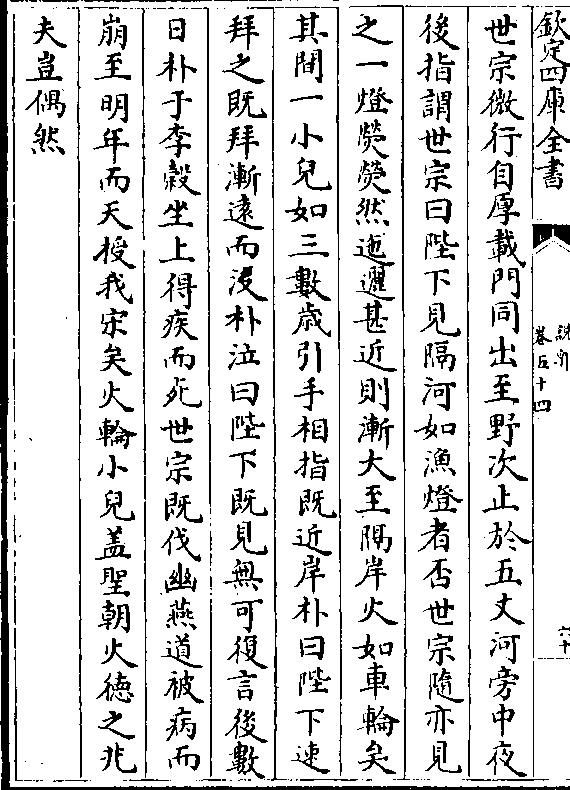 欽定四庫全書
說郛
卷五十四
六十
世宗微行自厚載門同出至野次止於五丈河旁中夜
後指謂世宗曰陛下見隔河如漁燈者否世宗隨亦見
之一燈熒熒然迤邐甚近則漸大至隔岸火如車輪矣
其間一小兒如三數歲引手相指既近岸朴曰陛下速
拜之既拜漸遠而沒朴泣曰陛下既見無可復言後數
日朴于李穀坐上得疾而死世宗既伐幽燕道被病而
崩至明年而天授我宋矣火輪小兒盖聖朝火德之兆
夫豈偶然